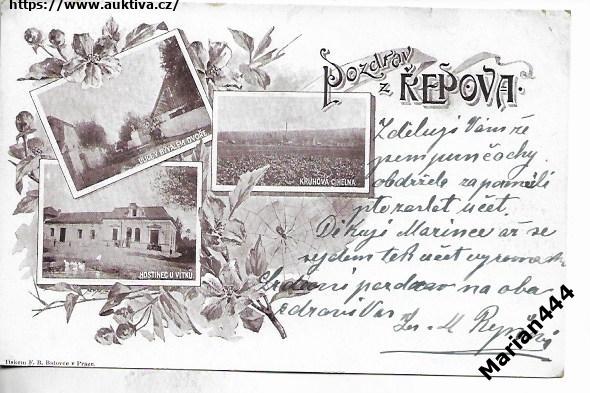 https://www.auktiva.cz/
Pozdrav
z ŘEPOVA.
KRUHOVÁ CIHELNA
HOSTINEC U VÍTKŮ
Zděluji Vám že
jsem punčochy
obdržela zapoměli
jste zaslat účet.
Děkuji Marince až se
sejdem tek účet
Srdečný pozdrav na oba
zdraví Vás
Tiskem F. B. Batovce v Praze.
Marian444